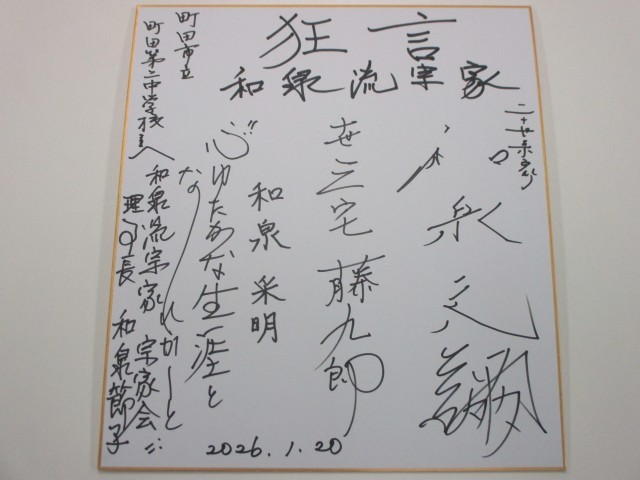 狂言
和泉流宗家
二十世宗家
和泉元彌
世三宅藤九郎
和泉采明
心ゆたかな生涯と
なりますように
町田市立
町田第二中学校さんへ
和泉流宗家 宗家会
理事長 和泉節子
2026.1.20